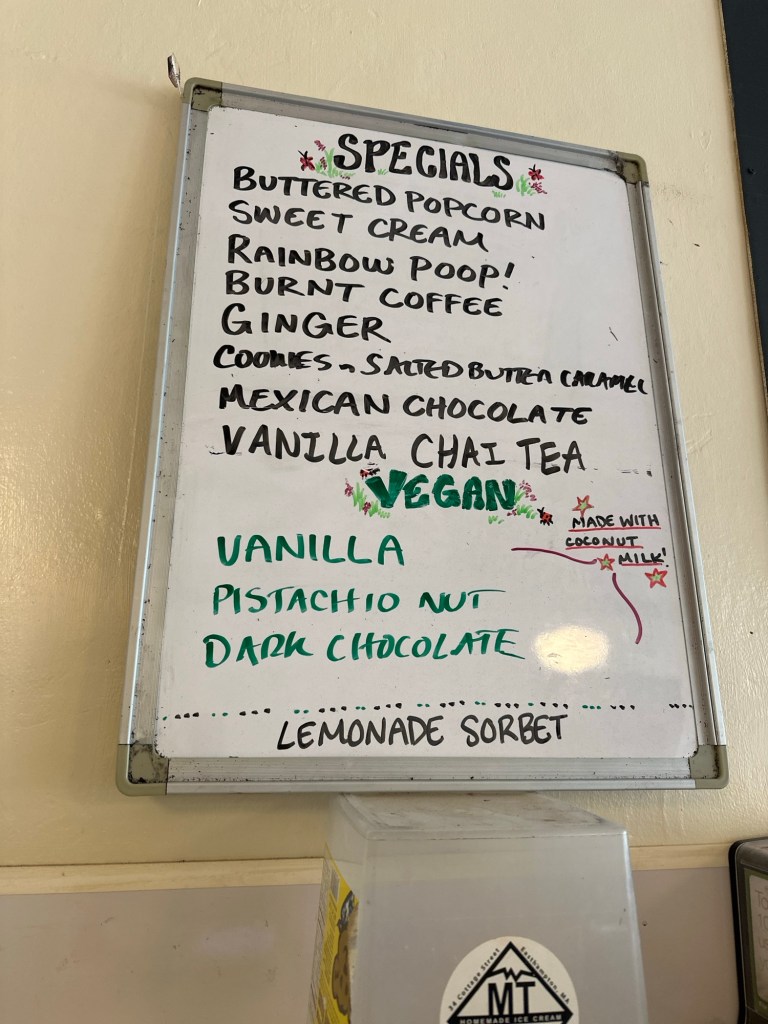 SPECIALS
BUTTERED POPCORN
SWEET CREAM
RAINBOW POOP!
BURNT COFFEE
GINGER
COOKIES n SALTED BUTTER CARAMEL
MEXICAN CHOCOLATE
VANILLA CHAI TEA
VEGAN
MADE WITH
COCONUT
MILK!
VANILLA
PISTACHIO NUT
DARK CHOCOLATE
LEMONADE SORBET
34 Cottage Street Easthampton, MA
MT
HOMEMADE ICE CREAM